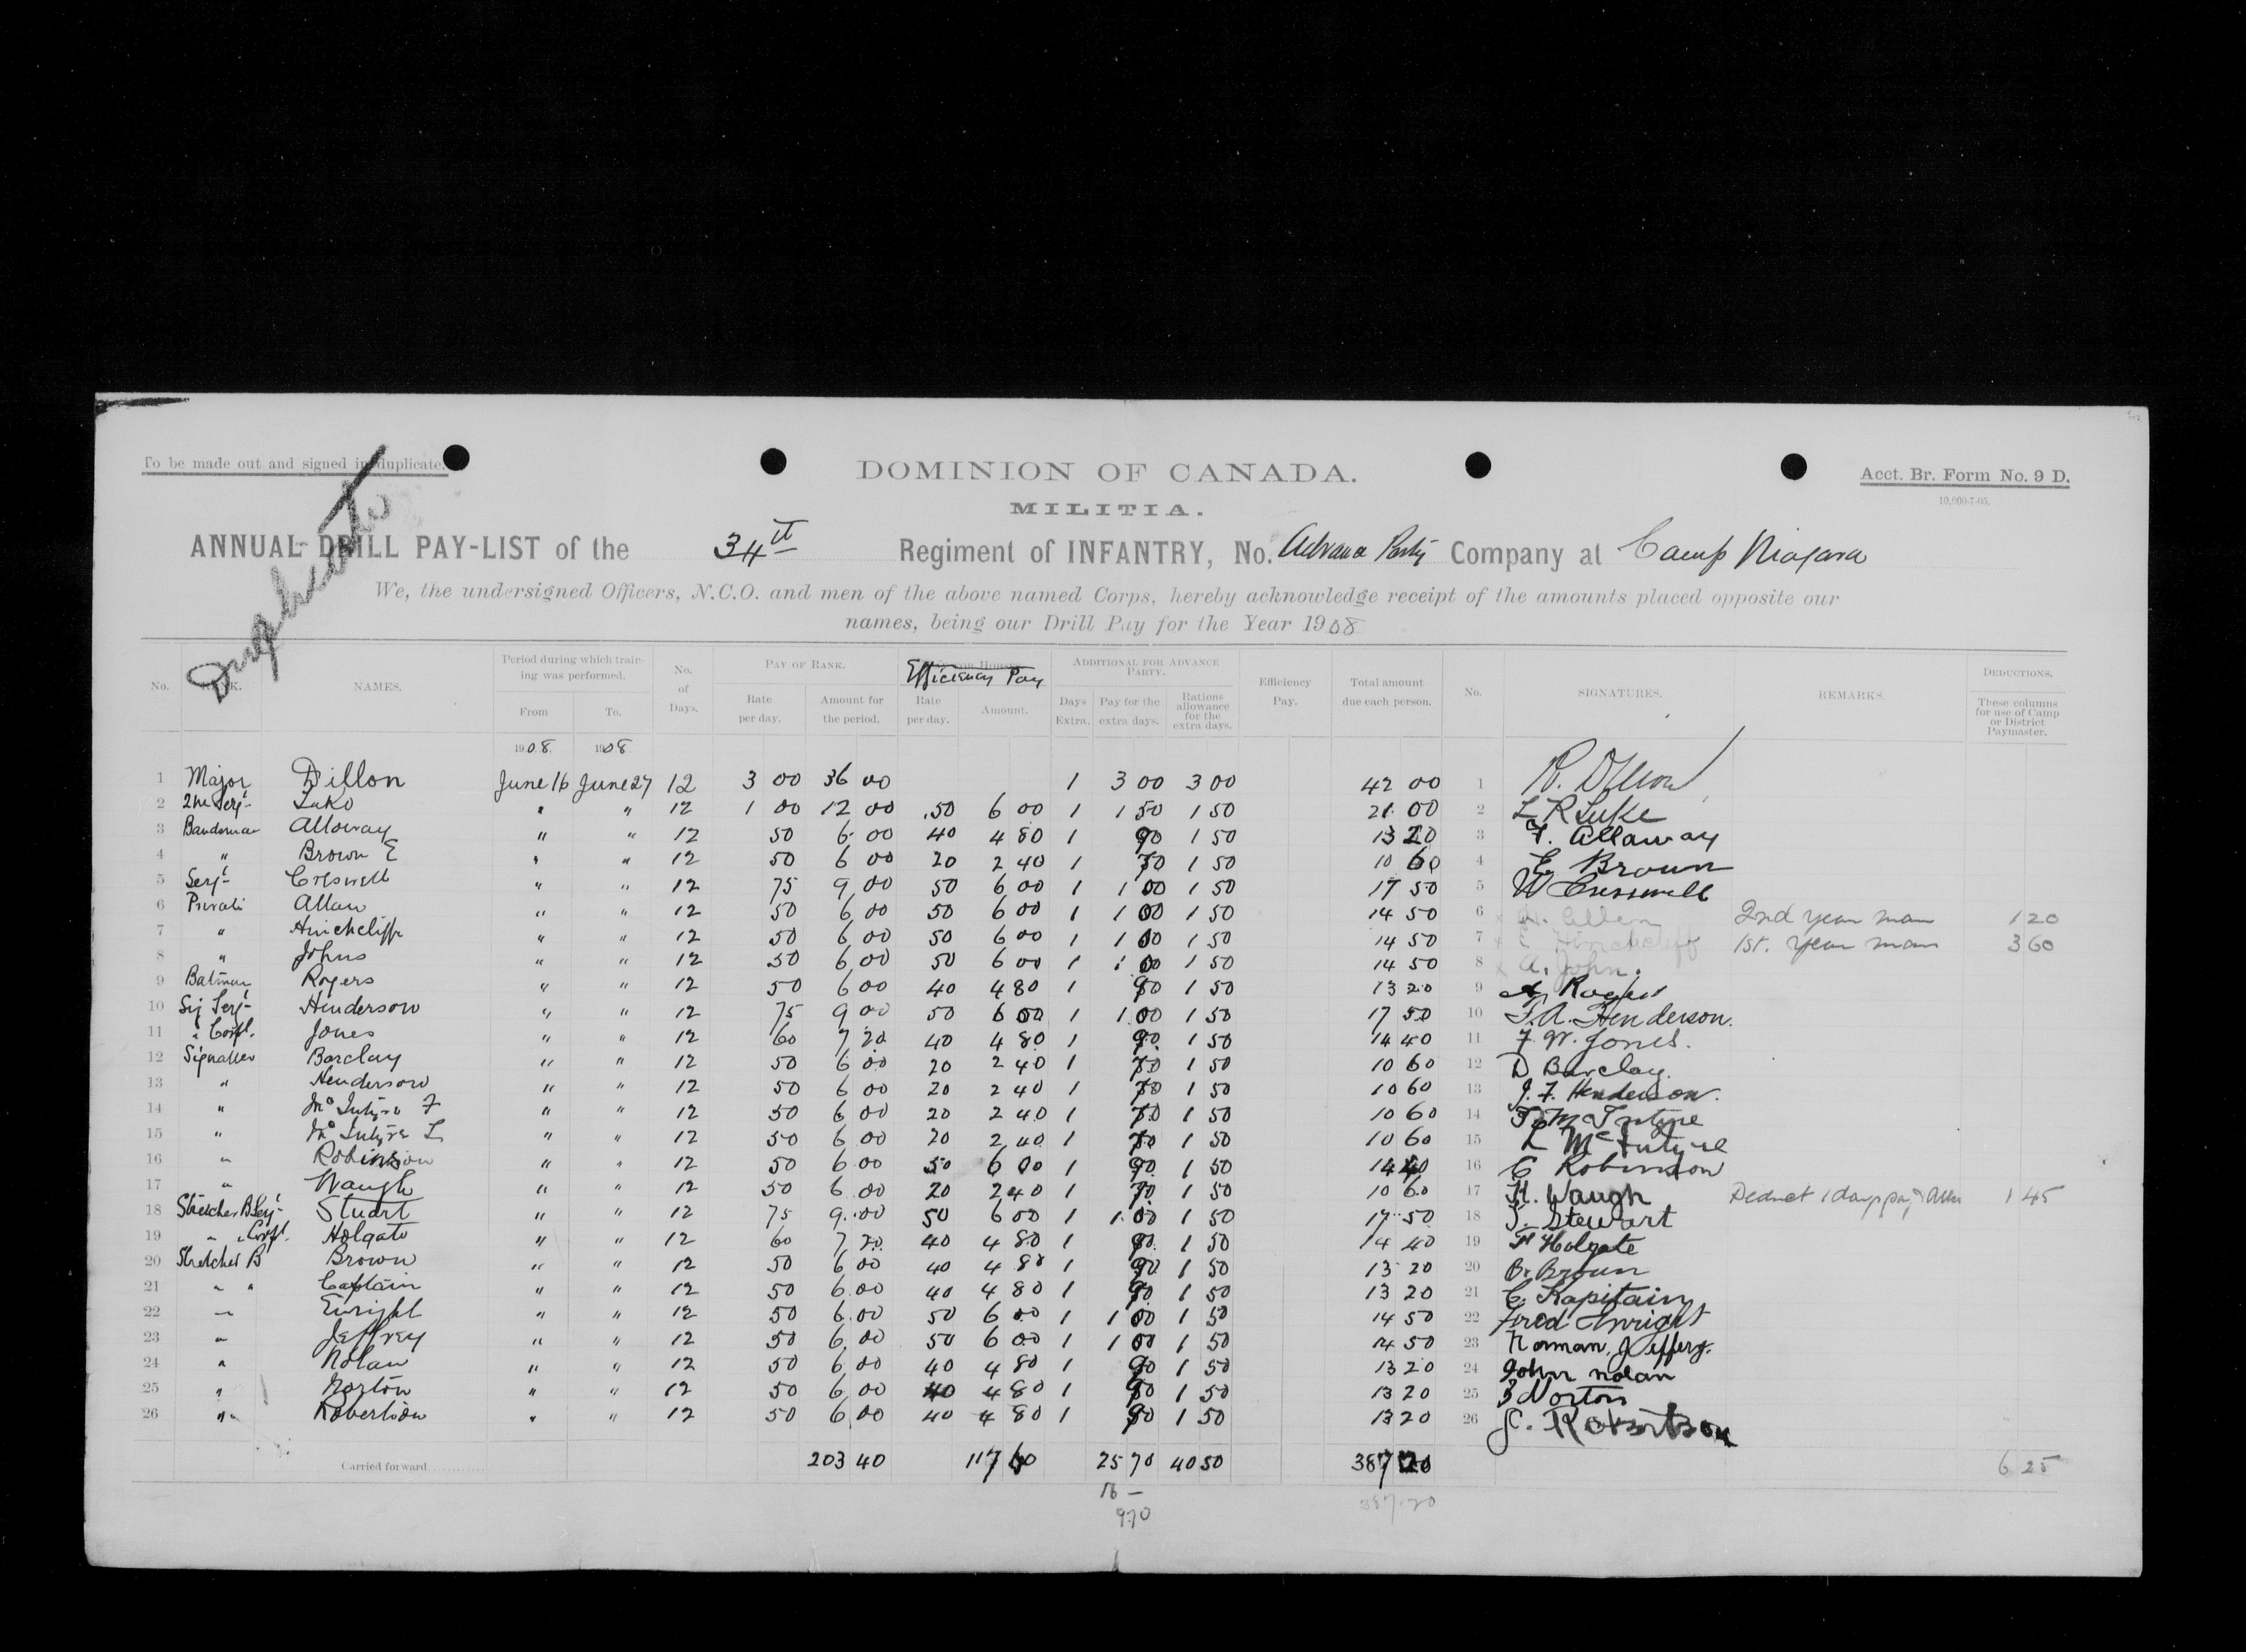 To be made out and signed in duplicate.
Duplicate
DOMINION OF CANADA.
MILITIA.
Acct. Br. Form No. 9 D.
10,000-7-05.
ANNUAL DRILL PAY-LIST of the 34th Regiment of INFANTRY, No. Advance Party Company at Camp Niagara
We, the undersigned Officers, N.C.O. and men of the above named Corps, hereby acknowledge receipt of the amounts placed opposite our
names, being our Drill Pay for the Year 1908
No. RANK. NAMES. Period during which training was performed. From To. No. of Days. PAY OF RANK. Rate per day. Amount for the period. Efficiency Pay Rate per day. Amount. ADDITIONAL FOR ADVANCE PARTY. Days Extra. Pay for the extra days. Rations allowance for the extra days. Efficiency Pay. Total amount due each person. No. SIGNATURES. REMARKS. DEDUCTIONS. These columns for use of Camp or District Paymaster.
1908. 1908
1 Major Dillon June 16 June 27 12 3 00 36 00 1 3 00 3 00 42 00 1 R. Dillon
2 Luke " " 12 1 00 12 00 .50 6 00 1 1 50 1 50 21 00 2 L R Luke
3 Bandsman Alloway " " 12 50 6 00 40 4 80 1 90 1 50 13 20 3 F. Allaway
4 " Brown E " " 12 50 6 00 20 2 40 1 70 1 50 10 60 4 E Brown
5 Serj- Creswell " " 12 75 9 00 50 6 00 1 1 00 1 50 17 50 5 W Cresswell
6 Private Allan " " 12 50 6 00 50 6 00 1 1 00 1 50 14 50 6 Allen 2nd year man 1 20
7 " Hinchcliffe " " 12 50 6 00 50 6 00 1 1 00 1 50 14 50 7 Hinchcliff 1st. year man 3 60
8 " Johns " " 12 50 6 00 50 6 00 1 1 00 1 50 14 50 8 x A. John.
9 Batman Rogers " " 12 50 6 00 40 4 80 1 90 1 50 13 20 9 Rogers
10 Sig Serj- Henderson " " 12 75 9 00 50 6 00 1 1 00 1 50 17 50 10 F. A. Henderson.
11 " Corpl. Jones " " 12 60 7 20 40 4 80 1 90 1 50 14 40 11 F. W. Jones.
12 Signaller Barclay " " 12 50 6 00 20 2 40 1 70 1 50 10 60 12 D Barclay.
13 " Henderson " " 12 50 6 00 20 2 40 1 70 1 50 10 60 13 J. F. Henderson.
14 " McIntyre F " " 12 50 6 00 20 2 40 1 70 1 50 10 60 14 F McIntyre
15 " McIntyre L " " 12 50 6 00 20 2 40 1 70 1 50 10 60 15 L McIntyre
16 " Robinson " " 12 50 6 00 50 6 00 1 90 1 50 14 40 16 C Robinson
17 " Waugh " " 12 50 6 00 20 2 40 1 70 1 50 10 60 17 H. Waugh Deduct 1 days pay & Allce 1 45
18 Stretcher B Serj- Stuart " " 12 75 9 00 50 6 00 1 1 00 1 50 17 50 18 T. Stewart
19 " " Corpl. Holgate " " 12 60 7 20 40 4 80 1 90 1 50 14 40 19 F Holgate
20 Stretcher B Brown " " 12 50 6 00 40 4 80 1 90 1 50 13 20 20 B. Brown
21 " " Captain " " 12 50 6 00 40 4 80 1 90 1 50 13 20 21 C. Kapitain
22 " Enright " " 12 50 6 00 50 6 00 1 1 00 1 50 14 50 22 Fred Enright
23 " Jeffrey " " 12 50 6 00 50 6 00 1 1 00 1 50 14 50 23 Norman Jeffery.
24 " Nolan " " 12 50 6 00 40 4 80 1 90 1 50 13 20 24 John Nolan
25 " Norton " " 12 50 6 00 40 4 80 1 90 1 50 13 20 25 Norton
26 " " Robertson " " 12 50 6 00 40 4 80 1 90 1 50 13 20 26 J. Robertson
Carried forward 203 40 117 60 25 70 40 50 387 20 6 25
16 – 387.20
9.70